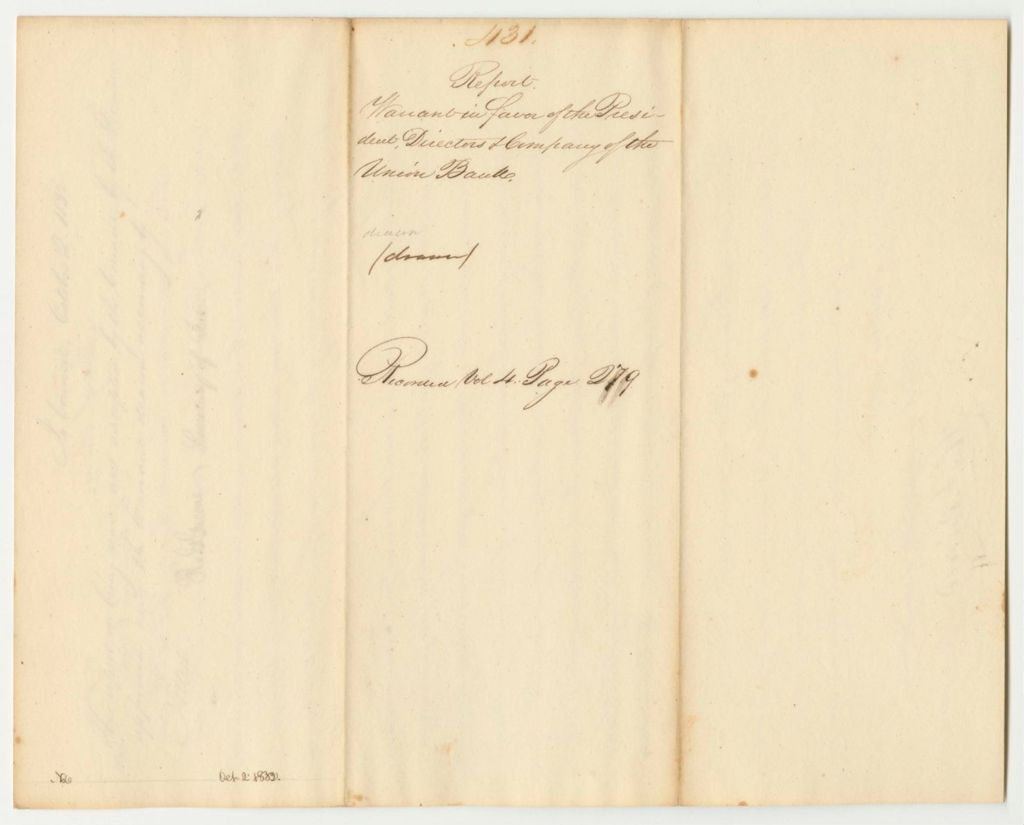 431.
Report.
Warrant in favor of the Presi-
dent, Directors & Company of the
Union Bank.
drawn
(drawn)
Recorded Vol 4. Page 279
No
Oct. 2. 1832.